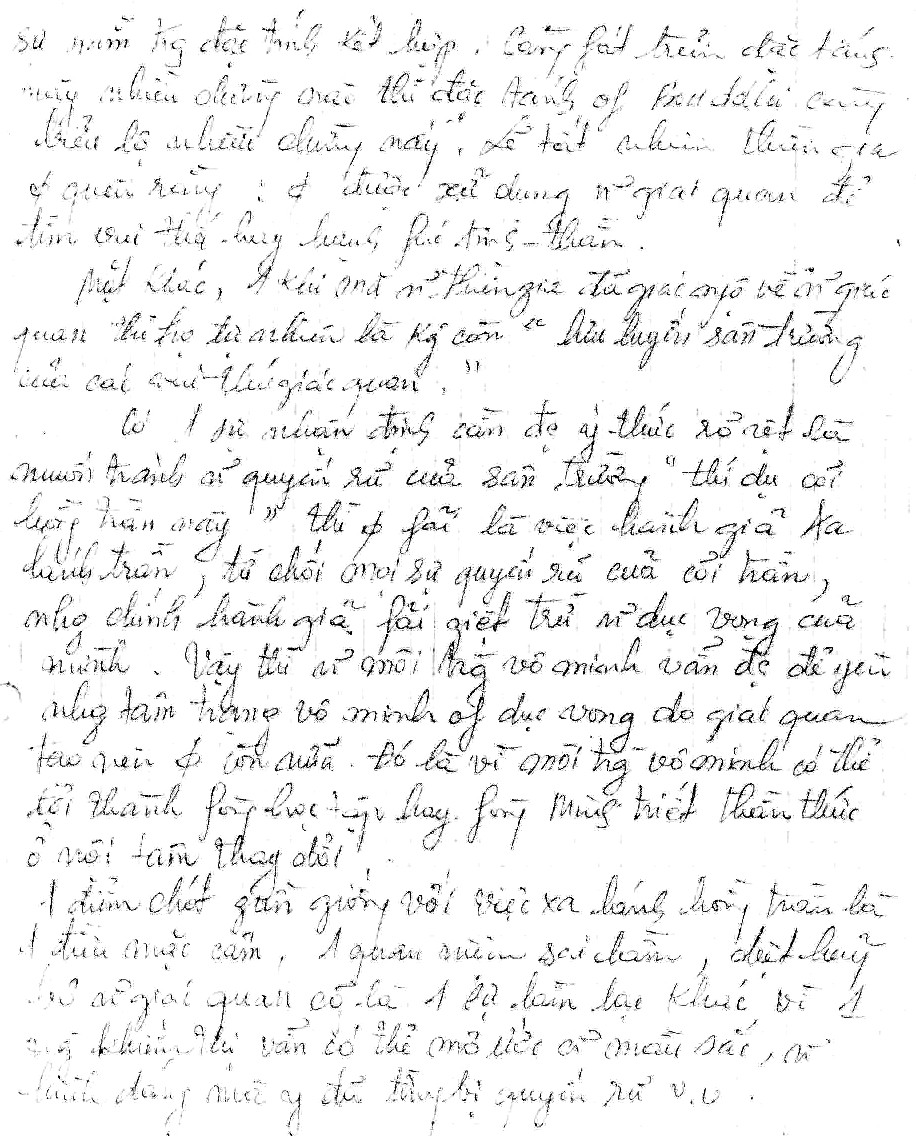 sự nằm tg đặc tính kết hợp. Càng fát triển đặc táng
này nhiều chừng nào thì đặc tánh of Buddhi càng
biểu lộ nhiều chừng nấy. Lẽ tất nhiên thiền gia
quên rằng: được xử dụng giai quan để
tìm vui thú hay hạnh fúc tinh-thần.
Mặt khác, 1 khi mà thiền gia đã giác ngộ về giác
quan thì họ tự nhiên là kg còn "lưu luyến sân trường
của các vui-thú giác quan."
Có 1 sự nhận định cần đc ý thức rõ rệt là
muốn tránh quyến rũ của sân trường "thí dụ cõi
hồng trần này" thì fải là việc hành giả xa
lánh trần, từ chối mọi sự quyến rũ của cõi trần,
nhg chính hành giả fải giết trừ dục vọng của
mình. Vậy thì môi trg vô minh vẫn đc để yên
nhg tâm trạng vô minh of dục vọng do giai quan
tạo nên còn nữa. Đó là vì môi trg vô minh có thể
trở thành fòng học tập hay fòng Minh triết thần thức
ở nội tâm thay đổi.
1 điểm chót gần giống với việc xa lánh hồng trần là
1 điều mặc cảm, 1 quan niệm sai lầm, diệt huỷ
giai quan cũ là 1 sự lầm lạc khác vì 1
ng khiếm thị vẫn có thể mơ ước màu sắc,
hình dáng mà ý đã từng bị quyến rũ v.v.